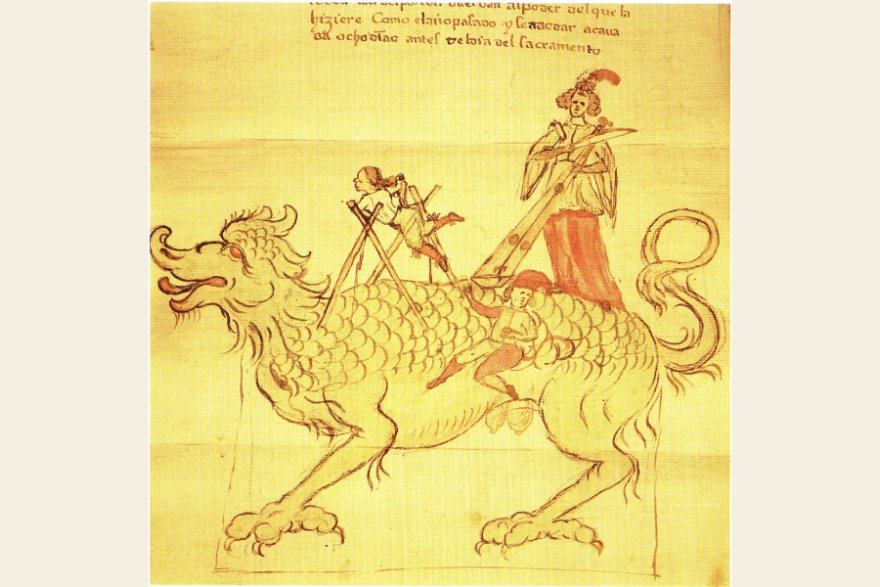 al poder del que la
hiziere Como el año pasado y se a de dar acava
da ocho dias antes de la dia del sacramento